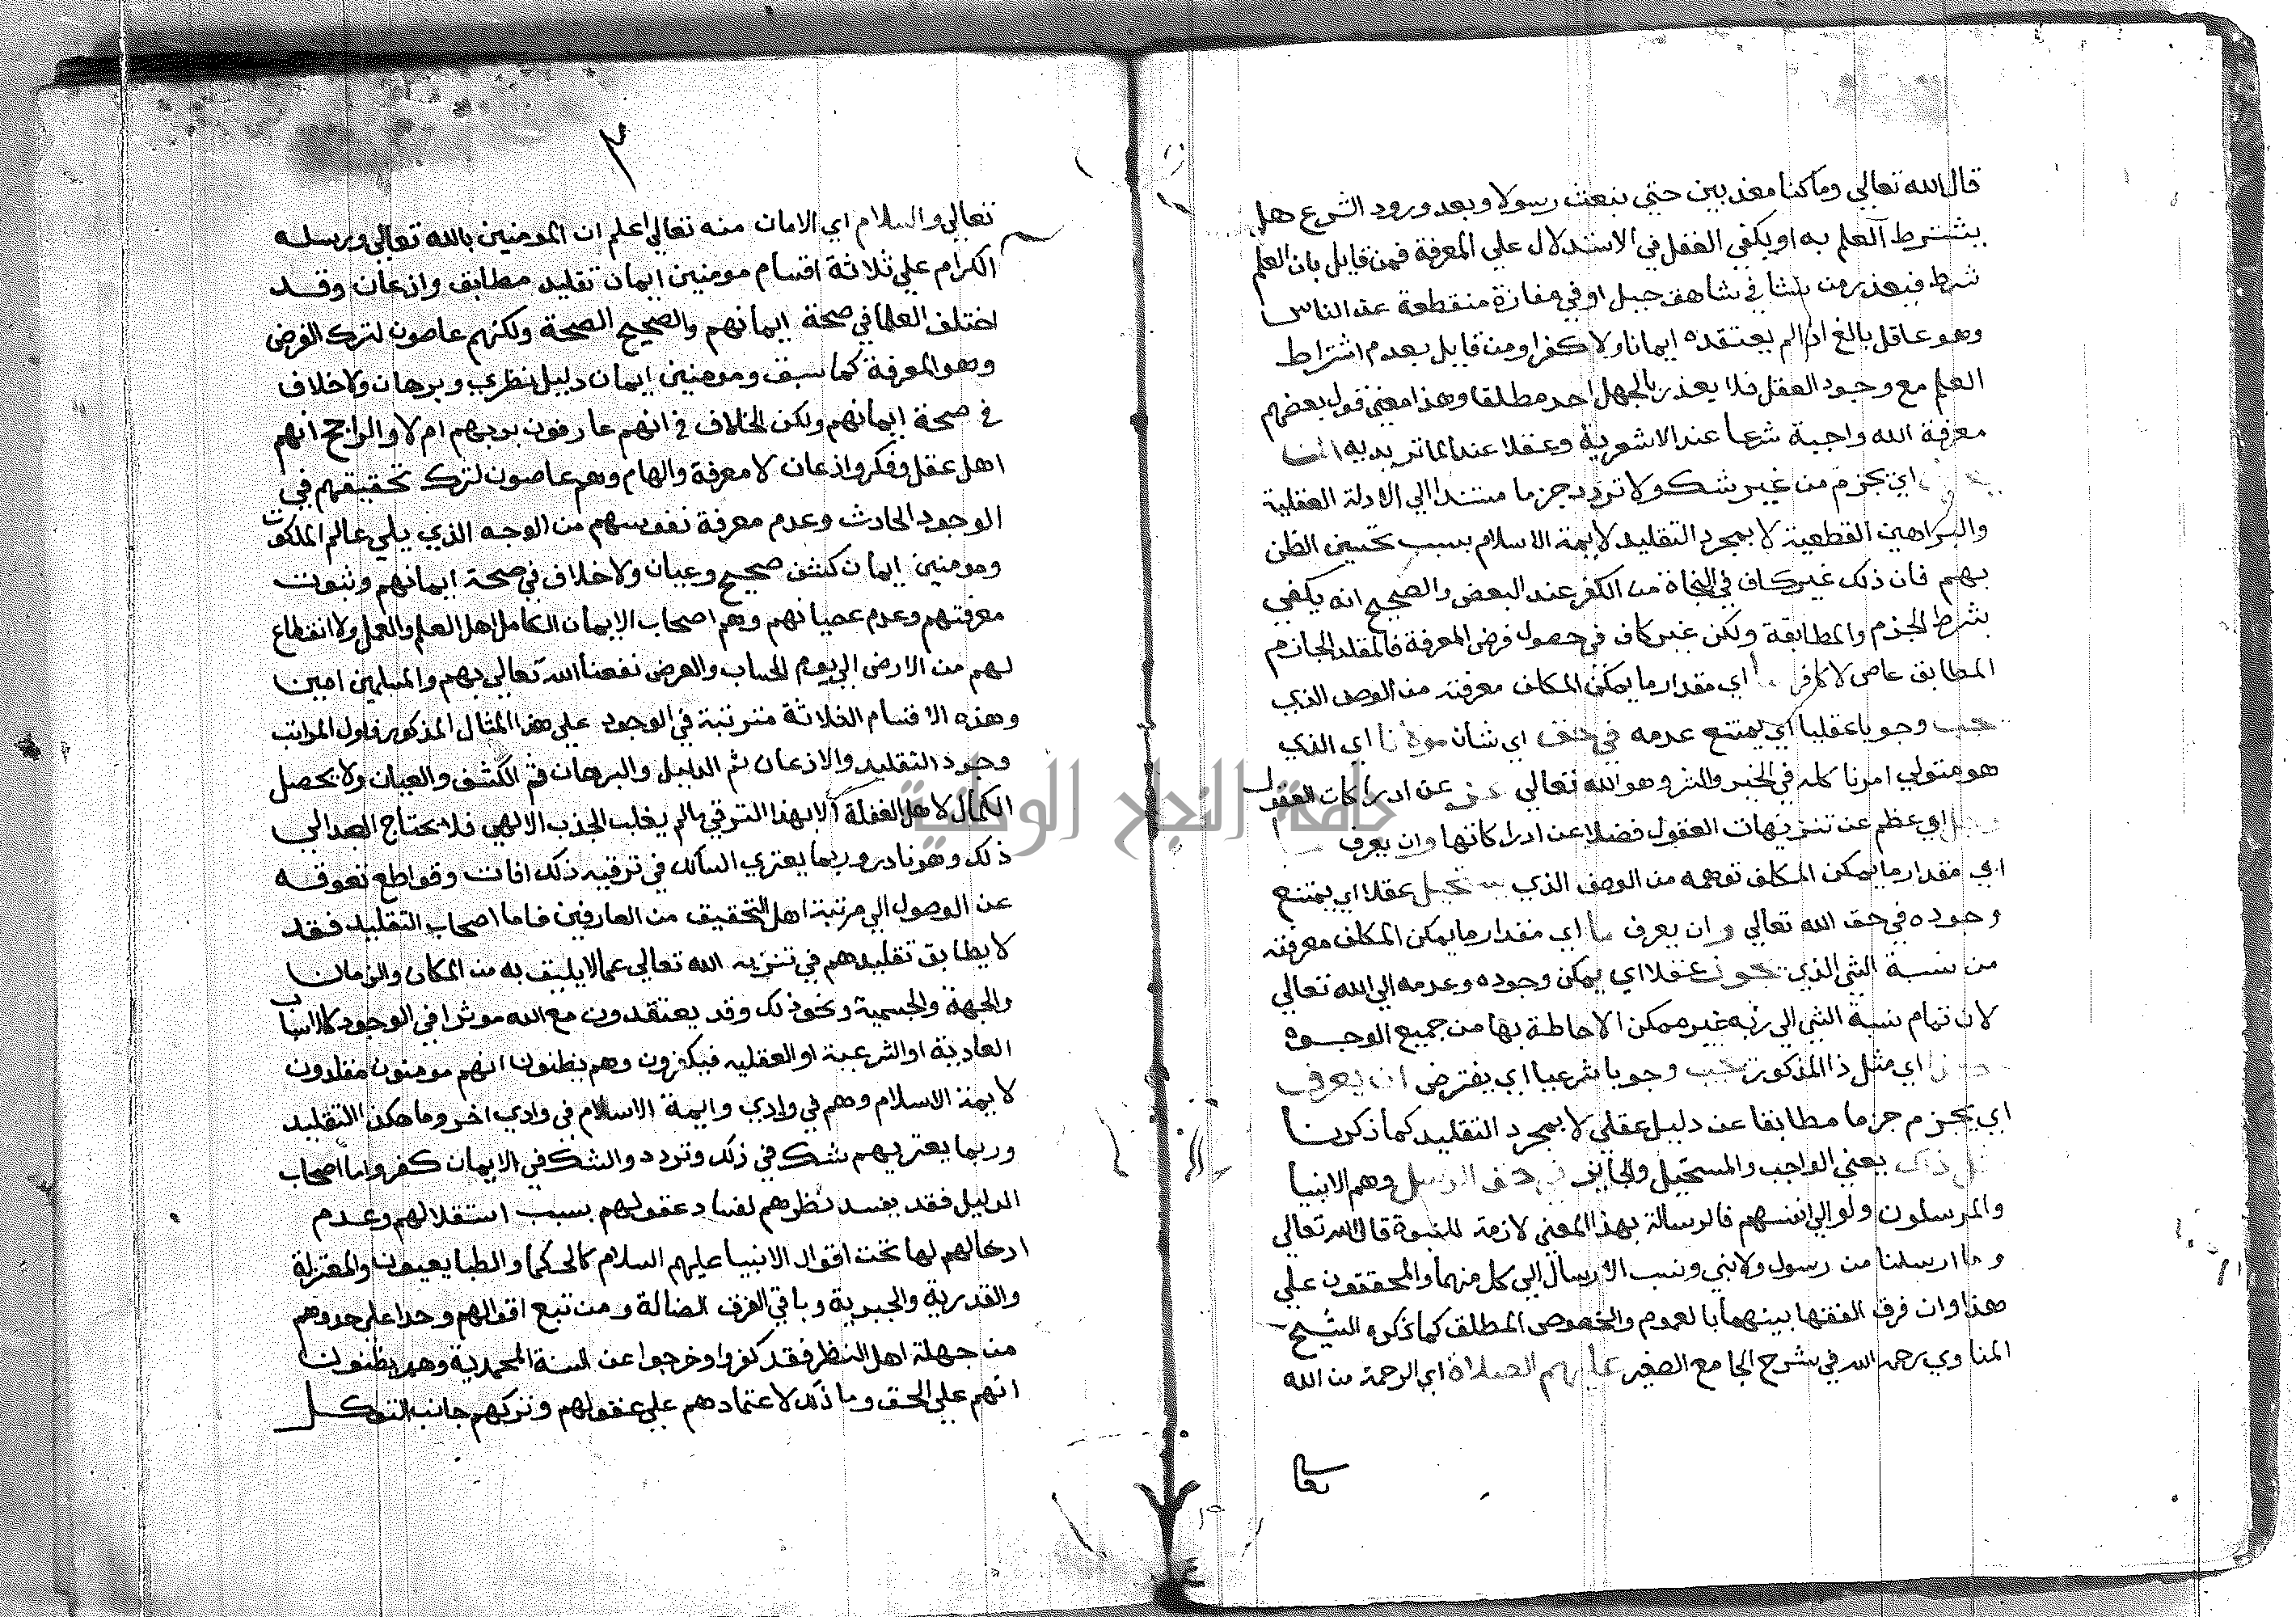 قال الله تعالي وماكنا معذبين حتي نبعث رسولا وبعد ورود الشرع هل
يشترط العلم به او يكفي العقل في الاستدلال علي المعرفة فمن قايل بان العلم
شرط فيعذر من نشا في شاهق جبل او في مفازة منقطعة عن الناس
وهو عاقل بالغ اذا لم يعتقد ايمانا ولا كفرا ومن قايل بعدم اشتراط
العلم مع وجود العقل فلا يعذر بالجهل احد مطلقا وهذا معني قول بعضهم
معرفة الله واجبة شرعا عند الاشعرية وعقلا عند الماتريديه
اي يجزم من غير شك ولا تردد جزما مستندا الي الادلة العقلية
والبراهين القطعية لا بمجرد التقليد لايمة الاسلام بسبب تحسين الظن
بهم فان ذلك غير كاف في النجاة من الكفر عند البعض والصحيح انه يكفي
بشرط الجزم والمطابقة ولكن غير كاف في حصول فرض المعرفة فالمقلد الجازم
المطابق عاص لا كافر ما اي مقدار ما يمكن المكلف معرفته من الوصف الذي
يجب وجوبا عقليا اي يمتنع عدمه في حق اي شان مولانا اي الذي
هو متولي امرنا كله في الخير والشر وهو الله تعالي عز عن ادراكات العقول
وجل اي عظم عن تنزيهات العقول فضلا عن ادراكاتها وان يعرف
اي مقدار ما يمكن المكلف توهمه من الوصف الذي يستحيل عقلا اي يمتنع
وجوده في حق الله تعالي وان يعرف ما اي مقدار ما يمكن المكلف معرفته
من نسبة الشي الذي يجوز عقلا اي يمكن وجوده وعدمه الي الله تعالي
لان تمام نسبة الشي الي ربه غير ممكن الاحاطة بها من جميع الوجوه
اي مثل ذا المذكور يجب وجوبا شرعيا اي يفترض ان يعرف
اي يجزم جزما مطابقا عن دليل عقلي لا بمجرد التقليد كما ذكرنا
مثل ذلك يعني الواجب والمستحيل والجايز في حق الرسل وهم الانبيا
والمرسلون ولو الي انفسهم فالرسالة بهذا المعني لازمة للنبوة قال الله تعالي
وما ارسلنا من رسول ولا نبي ونسب الارسال الي كل منهما والمحققون علي
هذا وان فرق الفقها بينهما بالعموم والخصوص المطلق كما ذكره الشيخ
المناوي رحمه الله في شرح الجامع الصغير عليهم الصلاة اي الرحمة من الله
تعا
٣
تعالي والسلام اي الامان منه تعالي اعلم ان المومنين بالله تعالي وبرسله
الكرام علي ثلاثة اقسام مومنين ايمان تقليد مطابق واذعان وقد
اختلف العلما في صحة ايمانهم والصحيح الصحة ولكنهم عاصون لترك الفرض
وهو المعرفة كما سبق ومومنين ايمان دليل نظري وبرهان ولا خلاف
في صحة ايمانهم ولكن الخلاف في انهم عارفون بربهم ام لا والراجح انهم
اهل عقل وفكر واذعان لا معرفة والهام وهم عاصون لترك تحقيقهم في
الوجود الحادث وعدم معرفة نفوسهم من الوجه الذي يلي عالم الملكوت
ومومنين ايمان كشف صحيح وعيان ولا خلاف في صحة ايمانهم وثبوت
معرفتهم وعدم عصيانهم وهم اصحاب الايمان الكامل اهل العلم والعمل ولا انقطاع
لهم من الارض الي يوم الحساب والعرض نفعنا الله تعالي بهم والمسلمين امين
وهذه الاقسام الثلاثة مترتبة في الوجود علي هذا المثال المذكور فاول المراتب
وجود التقليد والاذعان ثم الدليل والبرهان ثم الكشف والعيان ولا يحصل
الكمال لاهل الغفلة الا بهذا الترقي مالم يغلب الجذب الالهي فلا يحتاج العبد الي
ذلك وهو نادر وربما يعتري السالك في ترقيه ذلك افات وقواطع تعوقه
عن الوصول الي مرتبة اهل التحقيق من العارفين فاما اصحاب التقليد فقد
لا يطابق تقليدهم في تنزيه الله تعالي عما لا يليق به من المكان والزمان
والجهة والجسمية ونحو ذلك وقد يعتقدون مع الله موثرا في الوجود كالاسباب
العادية او الشرعية او العقليه فيكفرون وهم يظنون انهم مومنون مقلدون
لايمة الاسلام وهم في وادي وايمة الاسلام في وادي اخر وما هكذا التقليد
وربما يعتريهم شك في ذلك وتردد والشك في الايمان كفر واما اصحاب
الدليل فقد يفسد نظرهم لفساد عقولهم بسبب استقلالهم وعدم
ادخالهم لها تحت اقوال الانبيا عليهم السلام كالحكما والطبايعيون والمعتزلة
والقدرية والجبرية وباقي الفرق الضالة ومن تبع اقوالهم وحدا علي حدوهم
من جهلة اهل النظر فقد كفروا وخرجوا عن السنة المحمدية وهم يظنون
انهم علي الحق وما ذلك لاعتمادهم علي عقولهم وتركهم جانب التوكل
جامعة النجاح الوطنية